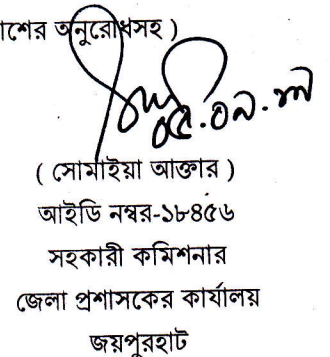 াশের অনুরোধসহ )
( সোমাইয়া আক্তার )
আইডি নম্বর-১৮৪৫৬
সহকারী কমিশনার
জেলা প্রশাসকের কার্যালয়
জয়পুরহাট